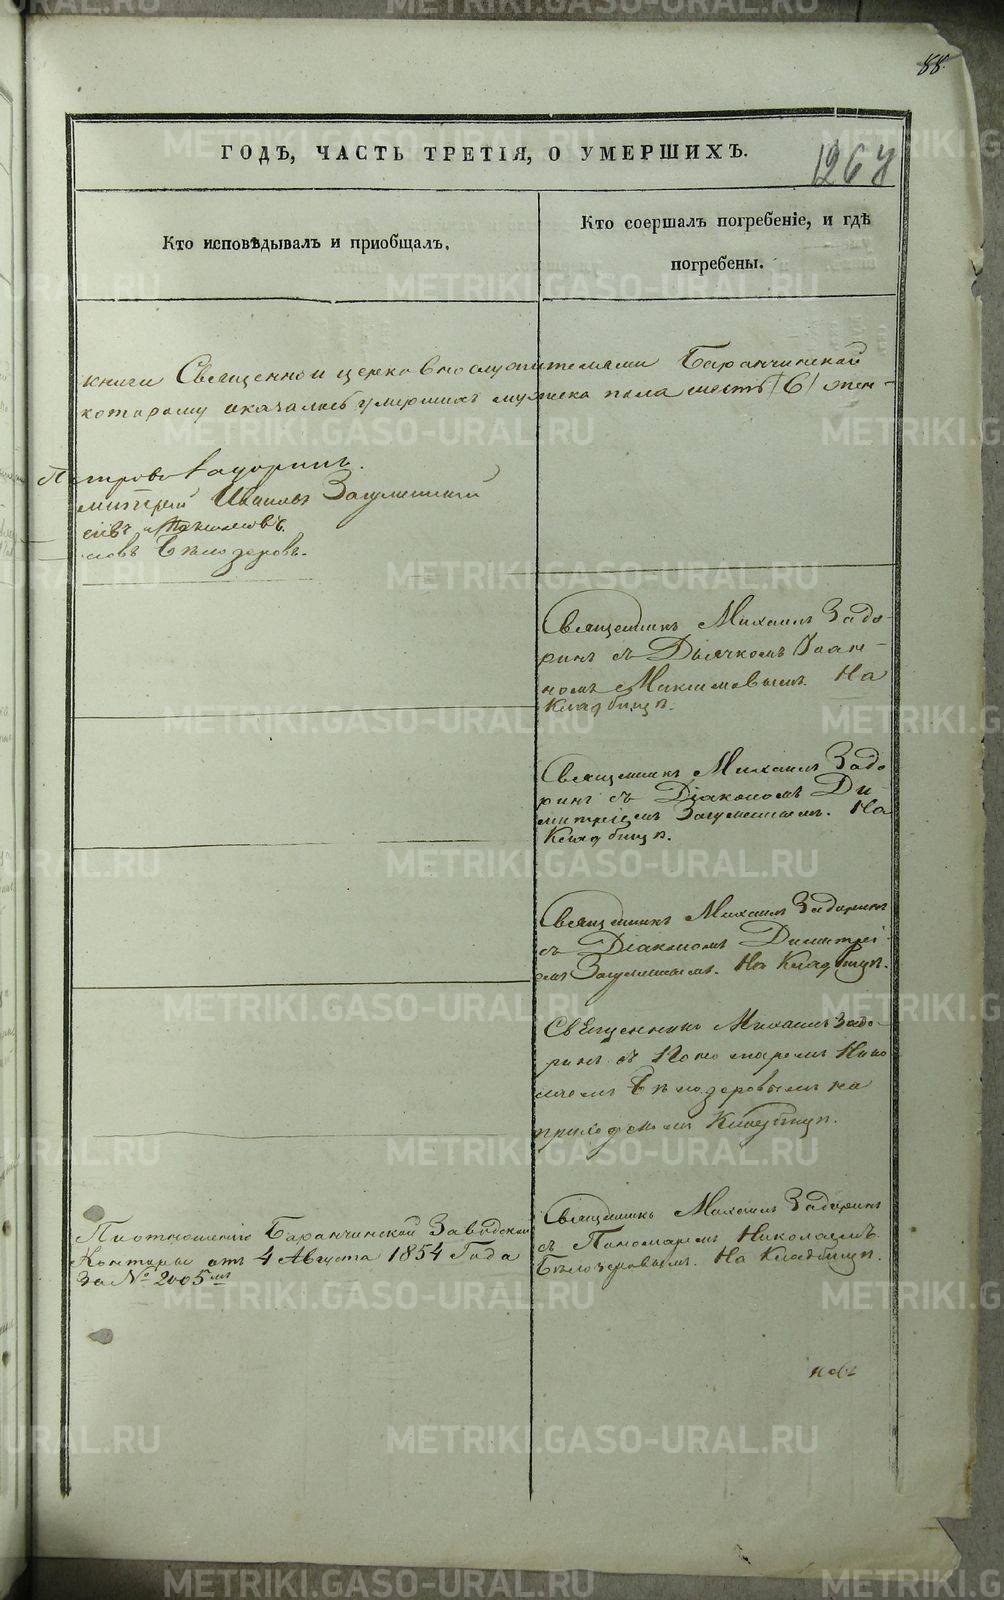 88.
ГОДѢ, ЧАСТЬ ТРЕТІЯ, О УМЕРШИХЪ.
1268
Кто исповѣдывалъ и приобщалъ.
Кто соершалъ погребеніе, и гдѣ
погребены.
книги Священно и церковнослужителями Баранчинской
которому оказалось умершихъ мужеска пола шесть /6/ жен-
Петровъ Задоринъ.
митрій Ивановъ Загуменный
Максимовъ.
Бѣлозеровъ.
Священникъ Михаилъ Задо-
ринъ съ Дьячкомъ Іоан-
номъ Максимовымъ. На
Кладбищѣ.
Священникъ Михаилъ Задо
ринъ съ Діакономъ Ди-
митріемъ Загуменнымъ. На
Кладбищѣ.
Священникъ Михаилъ Задоринъ
съ Діакономъ Димитрі-
емъ Загуменнымъ. На Кладбищѣ.
Священникъ Михаилъ Задо-
ринъ съ Пономаремъ Нико
лаемъ Бѣлозеровымъ на
приходскомъ Кладбищѣ.
По отношенію Баранчинской Заводской
Конторы отъ 4 Августа 1854 Года
За № 2005мъ
Священникъ Михаилъ Задоринъ
съ Пономаремъ Николаемъ
Бѣлозеровымъ. На Кладбищѣ.
METRIKI.GASO-URAL.RU